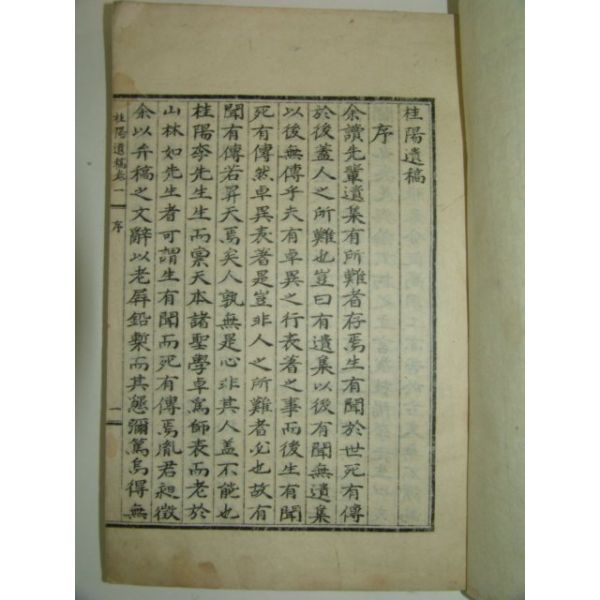 桂陽遺稿
序
余讀先輩遺集有所難者存焉生有聞於世死有傳
於後蓋人之所難也豈曰有遺集以後有聞無遺集
以後無傳乎夫有卓異之行表著之事而後生有聞
死有傳然卓異表著者是豈非人之所難者必也故有
聞有傳若昇天焉矣人孰無是心非其人盖不能也
桂陽李先生生而禀天本諸聖學卓爲師表而老於
山林如先生者可謂生有聞而死有傳焉胤君昶徵
余以弁稿之文辭以老屛鉛槧而其懇彌篤烏得無
桂陽遺稿卷一 序 一